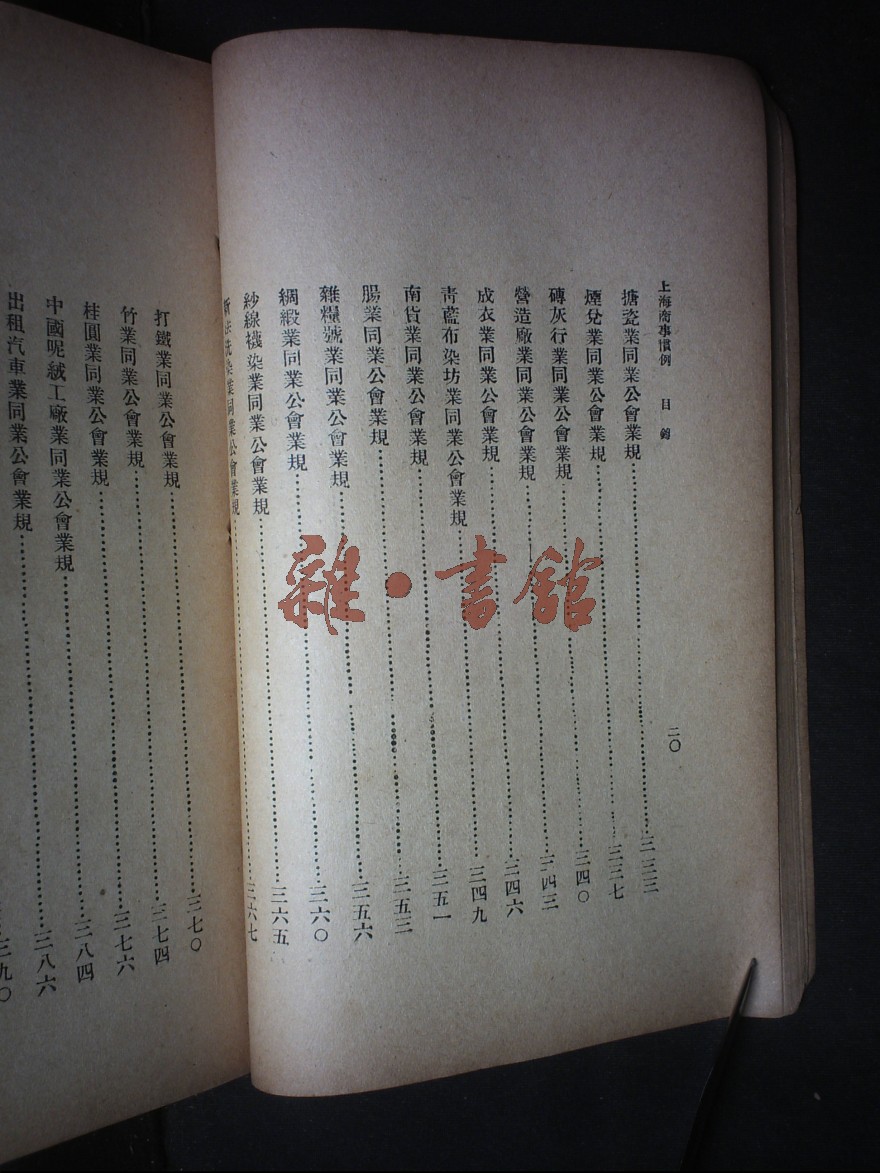 上海商事慣例 目錄 二〇
搪瓷業同業公會業規 三三三
煙兌業同業公會業規 三三七
磚灰行業同業公會業規 三四〇
營造廠業同業公會業規 三四三
成衣業同業公會業規 三四六
靑藍布染坊業同業公會業規 三四九
南貨業同業公會業規 三五一
腸業同業公會業規 三五三
雜糧號業同業公會業規 三五六
綢緞業同業公會業規 三六〇
紗線襪染業同業公會業規 三六五
洗染業同業公會業規 三六七
打鐵業同業公會業規 三七〇
竹業同業公會業規 三七四
桂圓業同業公會業規 三七六
中國呢絨工廠業同業公會業規 三八四
出租汽車業同業公會業規 三八六
三九〇
雜·書館